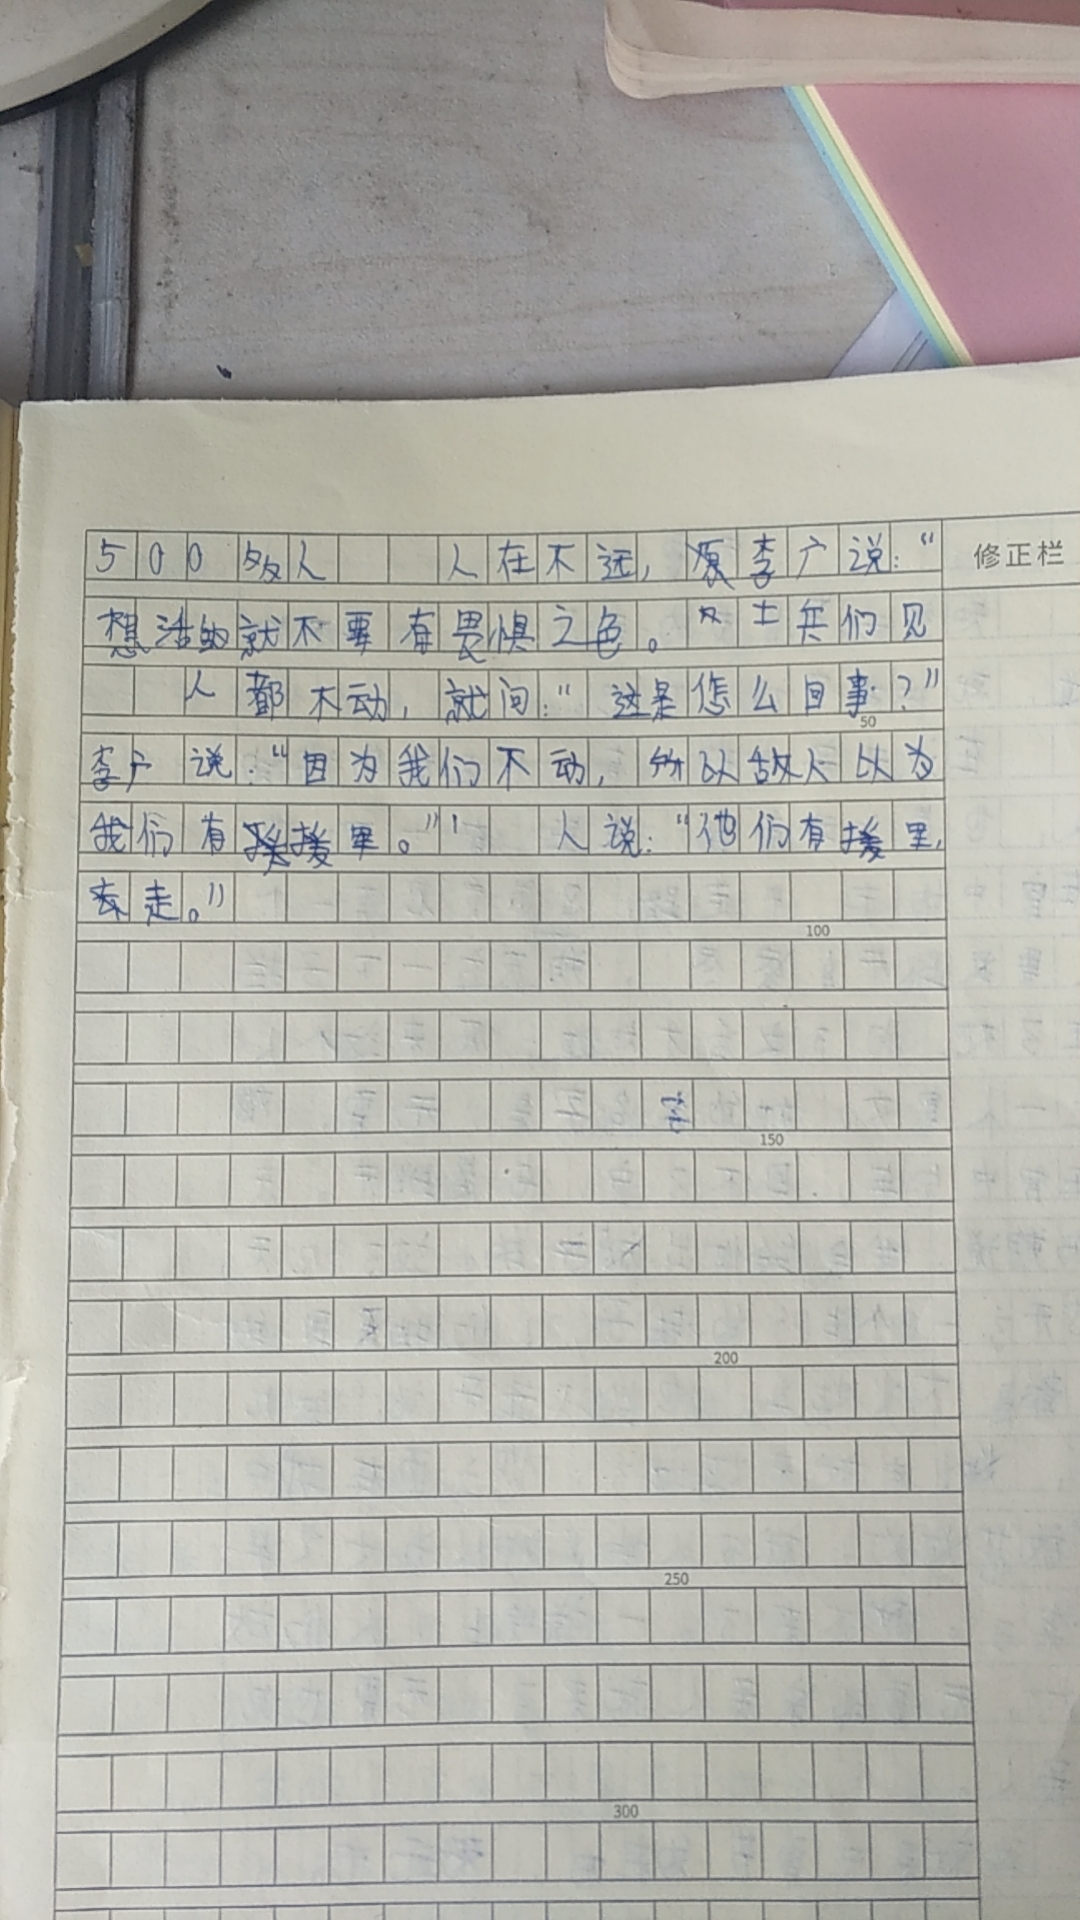 500多人 人在不远,李广说:“ 修正栏
想活的就不要有畏惧之色。士兵们见
人都不动,就问:“这是怎么回事?”
50
李广说:“因为我们不动,所以敌人以为
我们有援军。” 人说:“他们有援军,
走。”
100
150
200
250
300